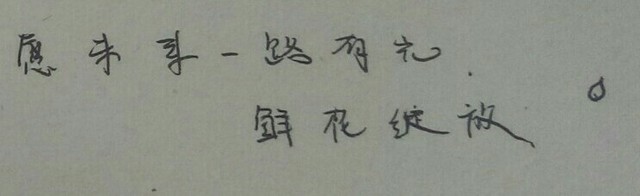 愿未来一路有光.
鲜花绽放。